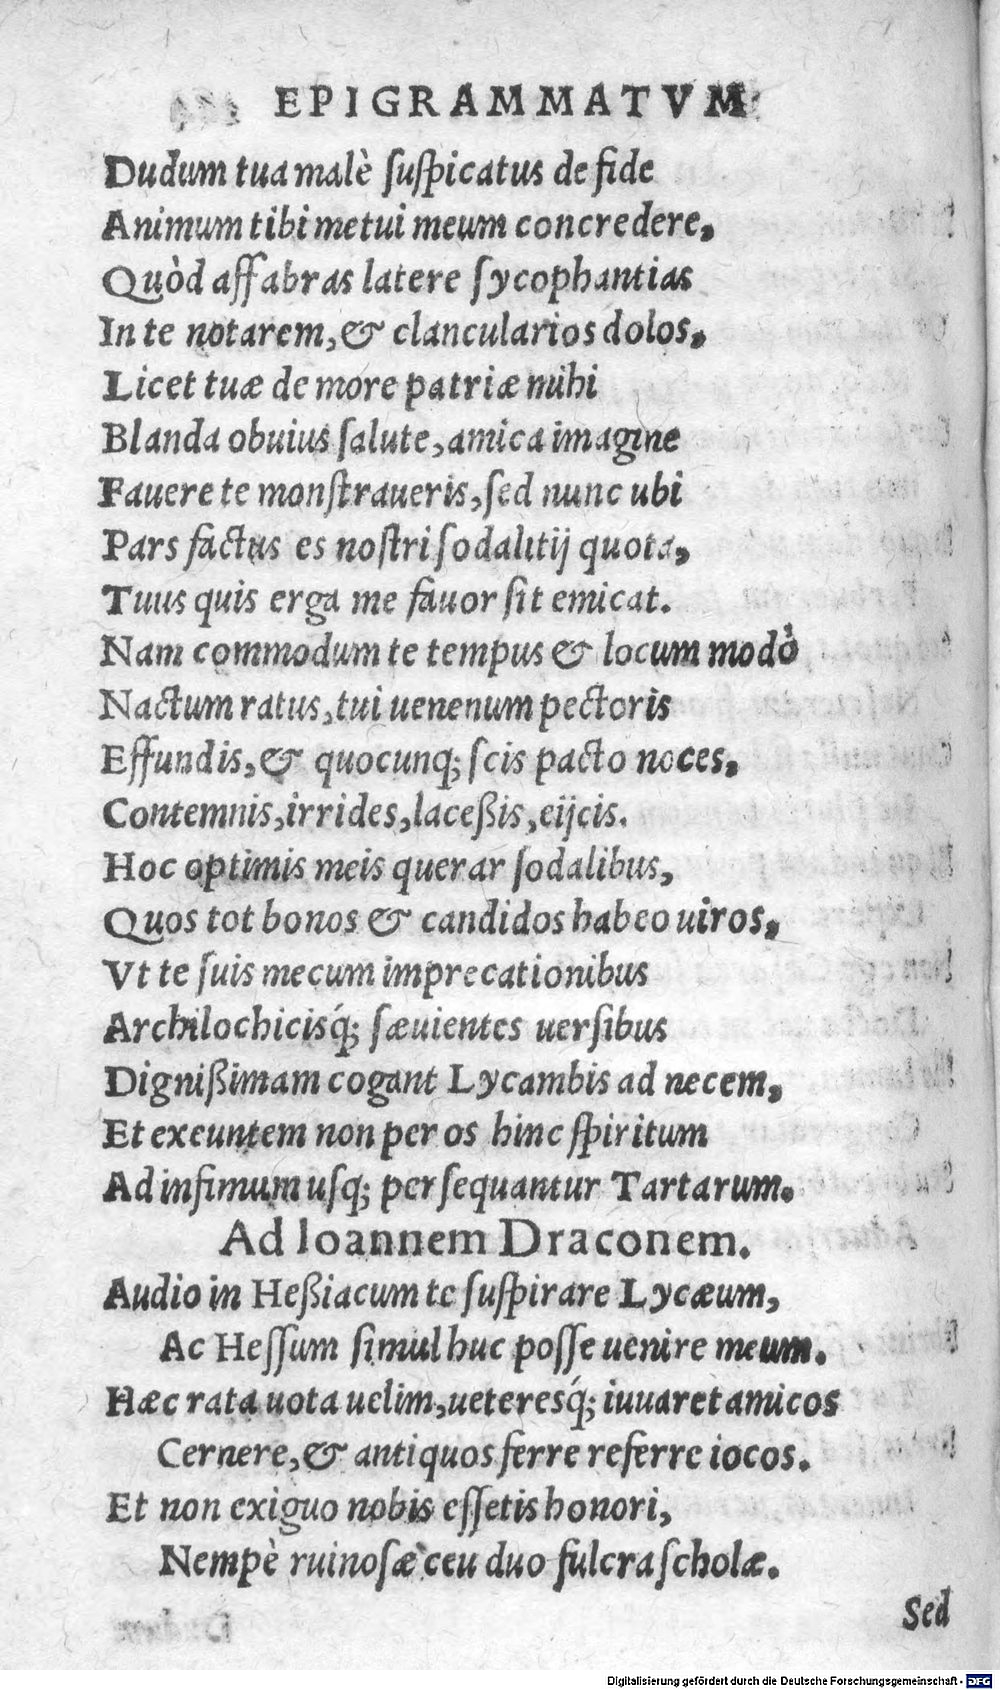 EPIGRAMMATVM
Dudum tua malè suspicatus de fide
Animum tibi metui meum concredere,
Quòd affabras latere sycophantias
In te notarem, & clancularios dolos,
Licet tuæ de more patriæ mihi
Blanda obuius salute, amica imagine
Fauere te monstraueris, sed nunc ubi
Pars factus es nostri sodalitij quota,
Tuus quis erga me fauor sit emicat.
Nam commodum te tempus & locum modò
Nactum ratus, tui uenenum pectoris
Effundis, & quocunq; scis pacto noces,
Contemnis, irrides, laceßis, eijcis.
Hoc optimis meis querar sodalibus,
Quos tot bonos & candidos habeo uiros,
Vt te suis mecum imprecationibus
Archilochicisq́; sæuientes uersibus
Dignißimam cogant Lycambis ad necem,
Et exeuntem non per os hinc spiritum
Ad infimum usq; persequantur Tartarum.
Ad Ioannem Draconem.
Audio in Heßiacum te suspirare Lycæum,
Ac Hessum simul huc posse uenire meum.
Hæc rata uota uelim, ueteresq́; iuuaret amicos
Cernere, & antiquos ferre referre iocos.
Et non exiguo nobis essetis honori,
Nempè ruinosæ ceu duo fulcra scholæ.
Sed
Digitalisierung gefördert durch die Deutsche Forschungsgemeinschaft - DFG